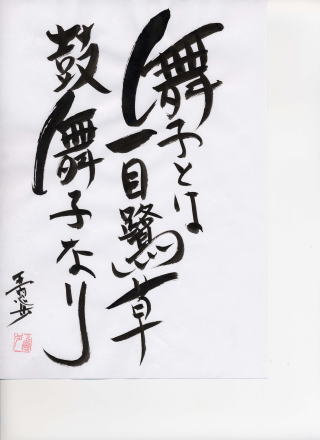 舞子とは
一目鷺草
鼓舞子なり